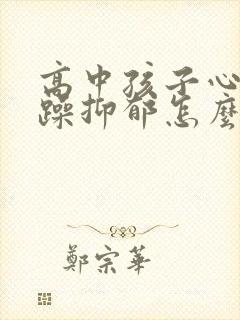 高中孩子心
躁抑郁怎麼
鄭宗華